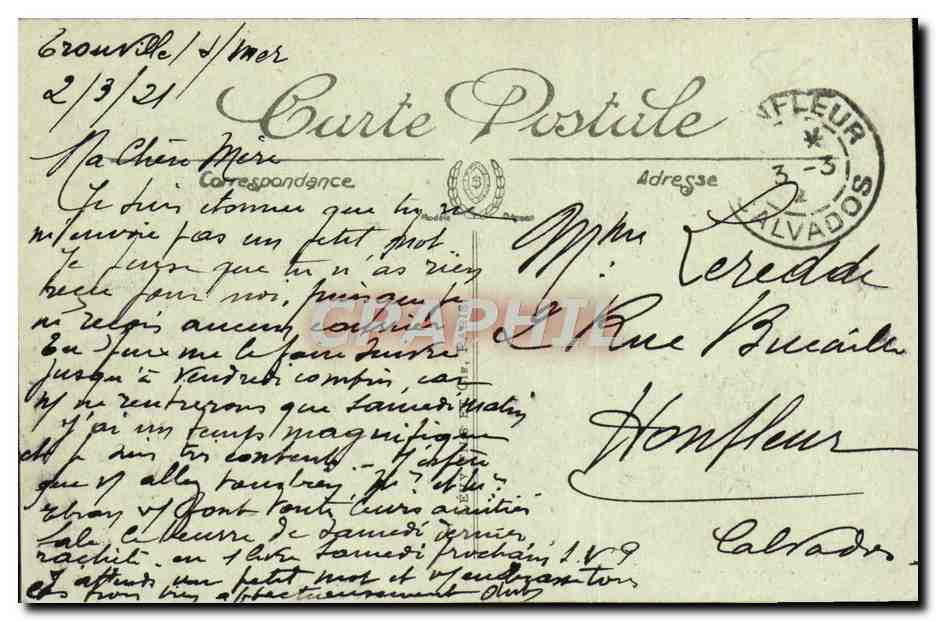 Trouville s/ mer
2/3/21
Carte Postale
Ma Chère Mère
Correspondance
Adresse
HONFLEUR
3 -3
CALVADOS
Je suis étonnée que tu ne
m'envoie pas un petit mot.
Je pense que tu n'as rien
reçu pour moi, puisque je
ne reçois aucun courrier.
me le faire suivre
jusqu'à Vendredi car
ns ne rentrerons que samedi matin
ns j'ai un temps magnifique
et je suis très contente. J'espère
que vs allez tous bien. Mr et Mme
vs font toute leurs amitiés
Sale le beurre de samedi dernier
rachète en 1 livre samedi prochain
J'attends un petit mot et vs embrassons
tous trois bien affectueusement
Mme Leredde
2 Rue Bucaille
Honfleur
Calvados
CPAPHIL